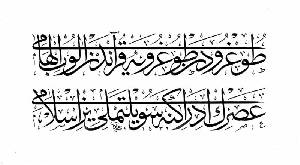 طوغرودن طوغرویه قرآندن آلوب الهامی
عصرك ادراكنه سویلتملی یز اسلامی